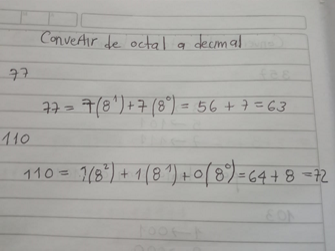 Convertir de octal a decimal
77
77 = 7(8¹) + 7(8⁰) = 56 + 7 = 63
110
110 = 1(8²) + 1(8¹) + 0(8⁰) = 64 + 8 = 72